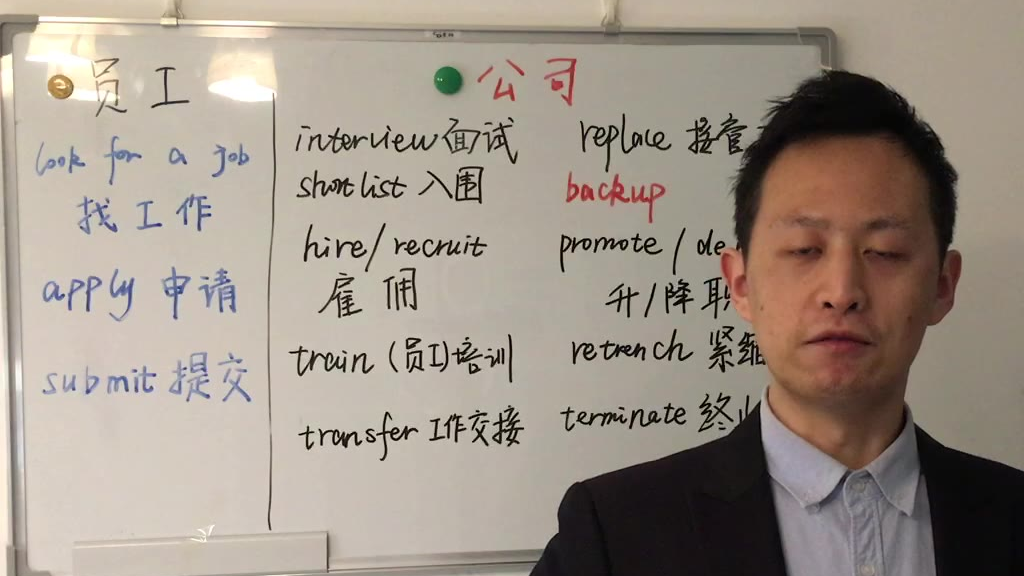 员工
look for a job
找工作
apply 申请
submit 提交
公司
interview 面试
shortlist 入围
hire/recruit
雇佣
train (员工)培训
transfer 工作交接
replace 接管
backup
promote / de
升/降职
retrench 紧缩
terminate 终止